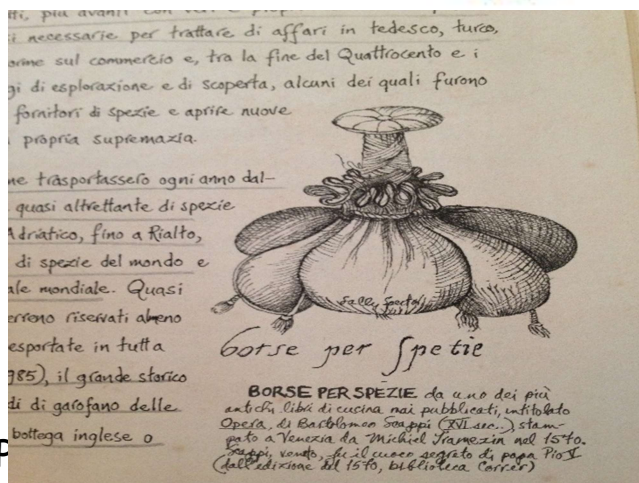 più avanti con
necessarie per trattare di affari in tedesco, turco,
sul commercio e, tra la fine del Quattrocento e i
di esplorazione e di scoperta, alcuni dei quali furono
fornitori di spezie e aprire nuove
propria supremazia.
trasportassero ogni anno dal-
quasi altrettante di spezie
Adriatico, fino a Rialto,
di spezie del mondo e
mondiale. Quasi
riservati
esportate in tutta
985), il grande storico
di di garofano delle
bottega inglese o
Sally Spector
borse per spetie
BORSE PER SPEZIE da uno dei più
antichi libri di cucina mai pubblicati, intitolato
Opera, di Bartolomeo Scappi (XVI sec.), stam-
pato a Venezia da Michiel Tramezin nel 1570.
Scappi, veneto, fu il cuoco segreto di papa Pio V
(dall'edizione del 1570, biblioteca Correr)